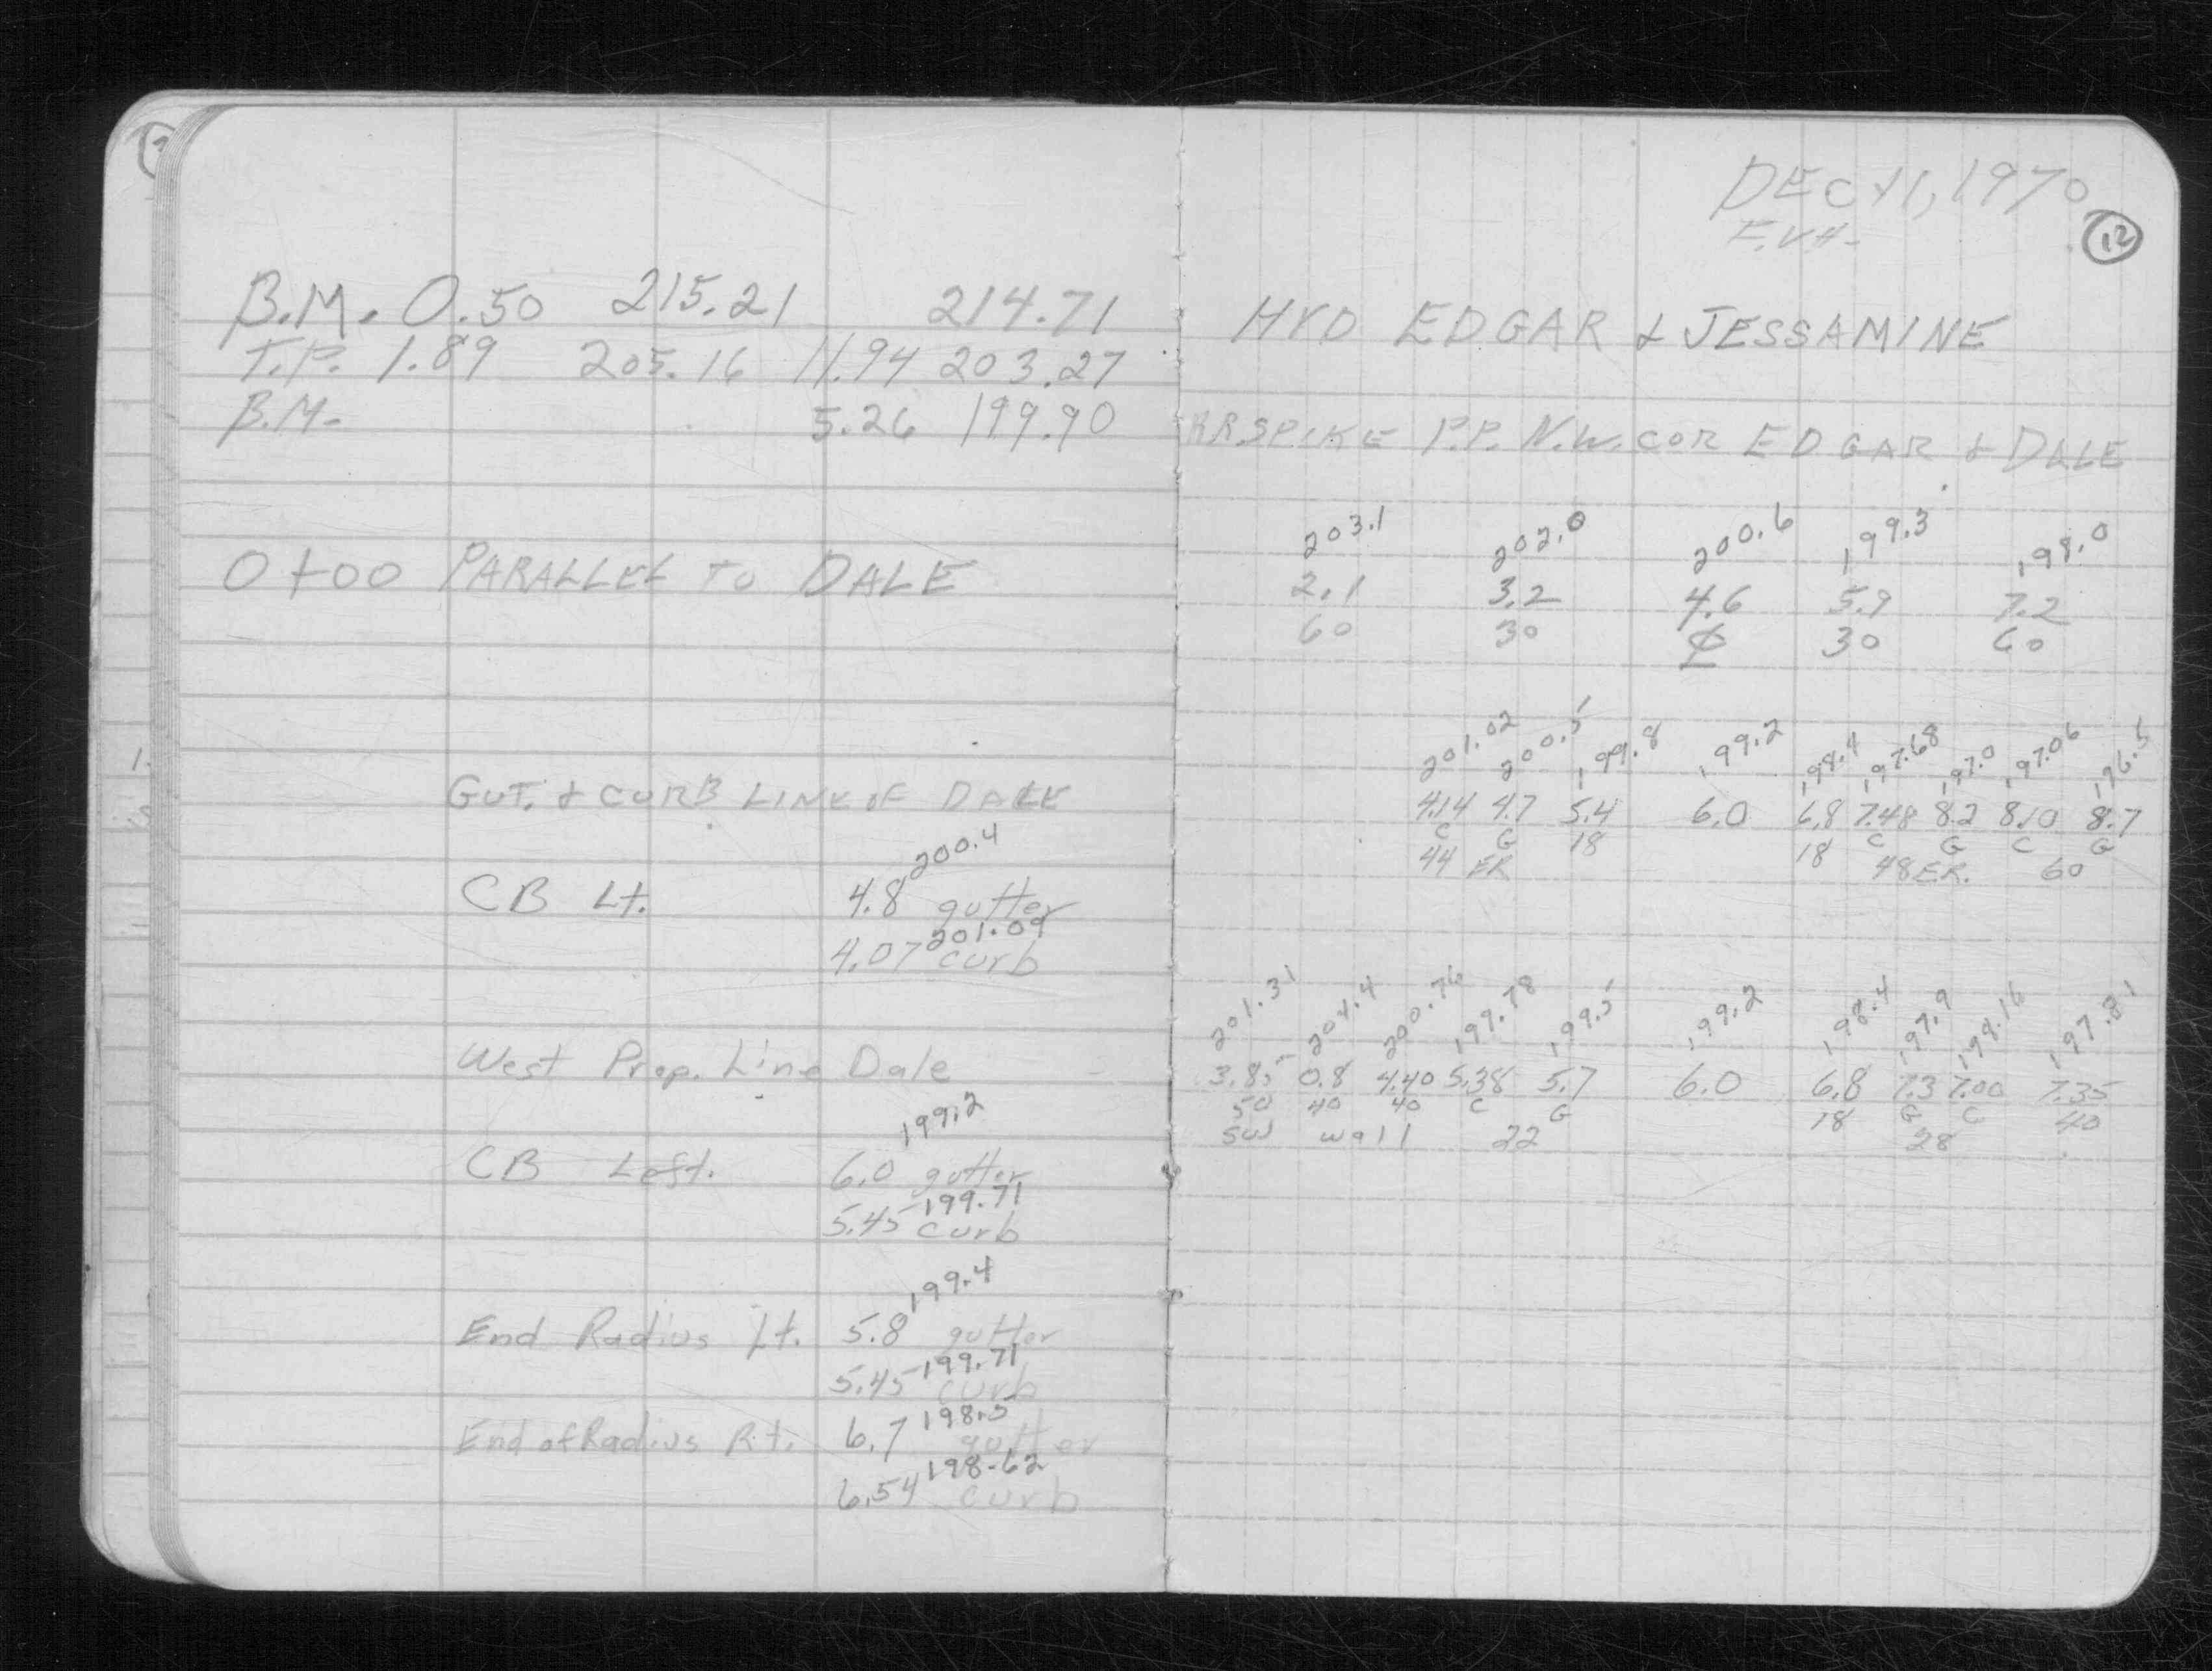 DEC 11, 1970
F.V.H.
12
B.M. 0.50 215.21 214.71 HYD EDGAR & JESSAMINE
T.P. 1.89 205.16 11.94 203.27
B.M. 5.26 199.90 RR.SPIKE P.P. N.W. COR EDGAR & DALE
203.1 202.0 200.6 199.3 198.0
0+00 PARALLEL TO DALE 2.1 3.2 4.6 5.9 7.2
60 30 ℄ 30 60
201.02 200.5 199.8 199.2 198.4 197.68 197.0 197.06 196.5
GUT. & CURB LINE OF DALE 4.14 4.7 5.4 6.0 6.8 7.48 8.2 8.10 8.7
C G 18 18 C G C G
44 ER 48 ER. 60
200.4
CB Lt. 4.8 gutter
201.09
4.07 curb
201.31 204.4 200.76 199.78 199.5 199.2 198.4 197.9 198.16 197.81
West Prop. Line Dale 3.85 0.8 4.40 5.38 5.7 6.0 6.8 7.3 7.00 7.35
50 40 40 C G 18 G C 40
wall 22 28
199.2
CB Left. 6.0 gutter
199.71
5.45 curb
199.4
End Radius Lt. 5.8 gutter
199.71
5.45 curb
198.5
End of Radius Rt. 6.7 gutter
198.62
6.54 curb